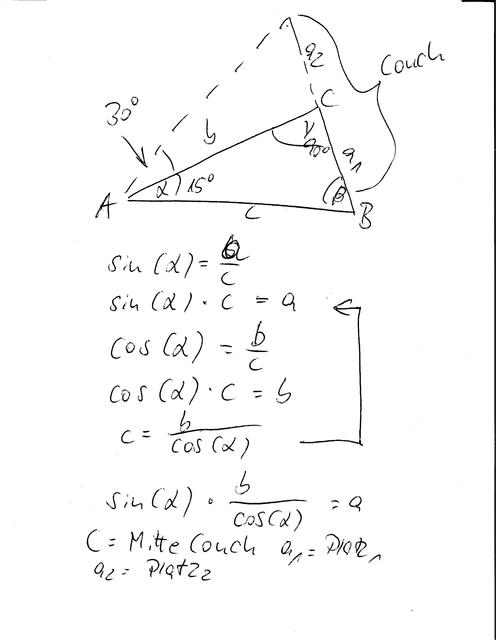 a2
Couch
C
30°
b
γ
90°
a1
α
15°
β
A
c
B
sin(α) = a/c
sin(α) · c = a
cos(α) = b/c
cos(α) · c = b
c = b/cos(α)
sin(α) · b/cos(α) = a
C = Mitte Couch a1 = Platz1
a2 = Platz2